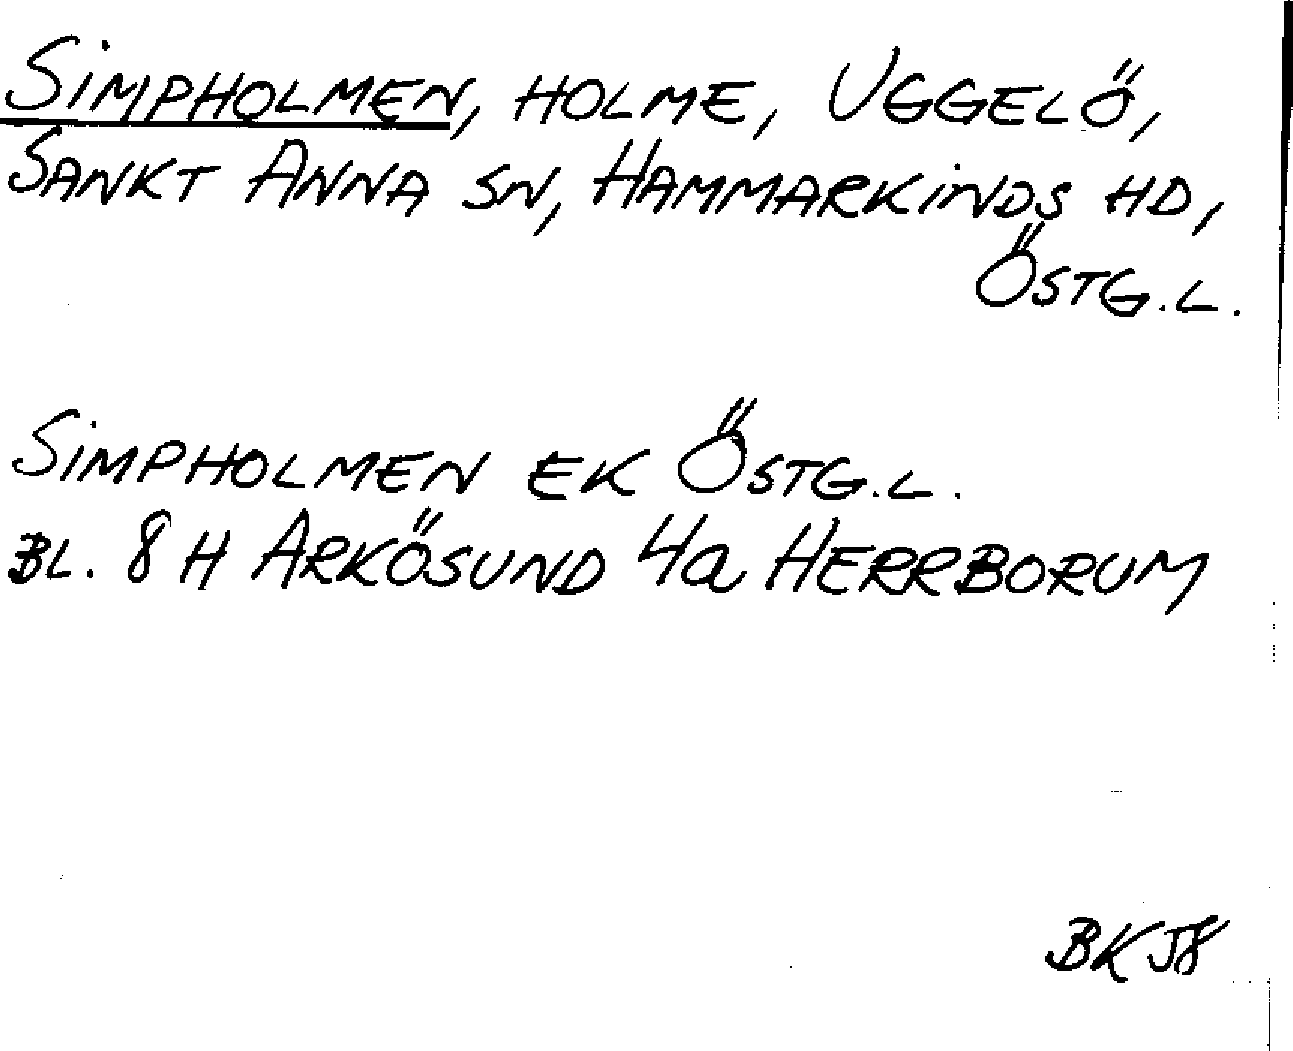 SIMPHOLMEN, HOLME, UGGELÖ,
SANKT ANNA SN, HAMMARKINDS HD,
ÖSTG.L.
SIMPHOLMEN EK ÖSTG.L.
BL. 8 H ARKÖSUND 4a HERRBORUM
BKJ8